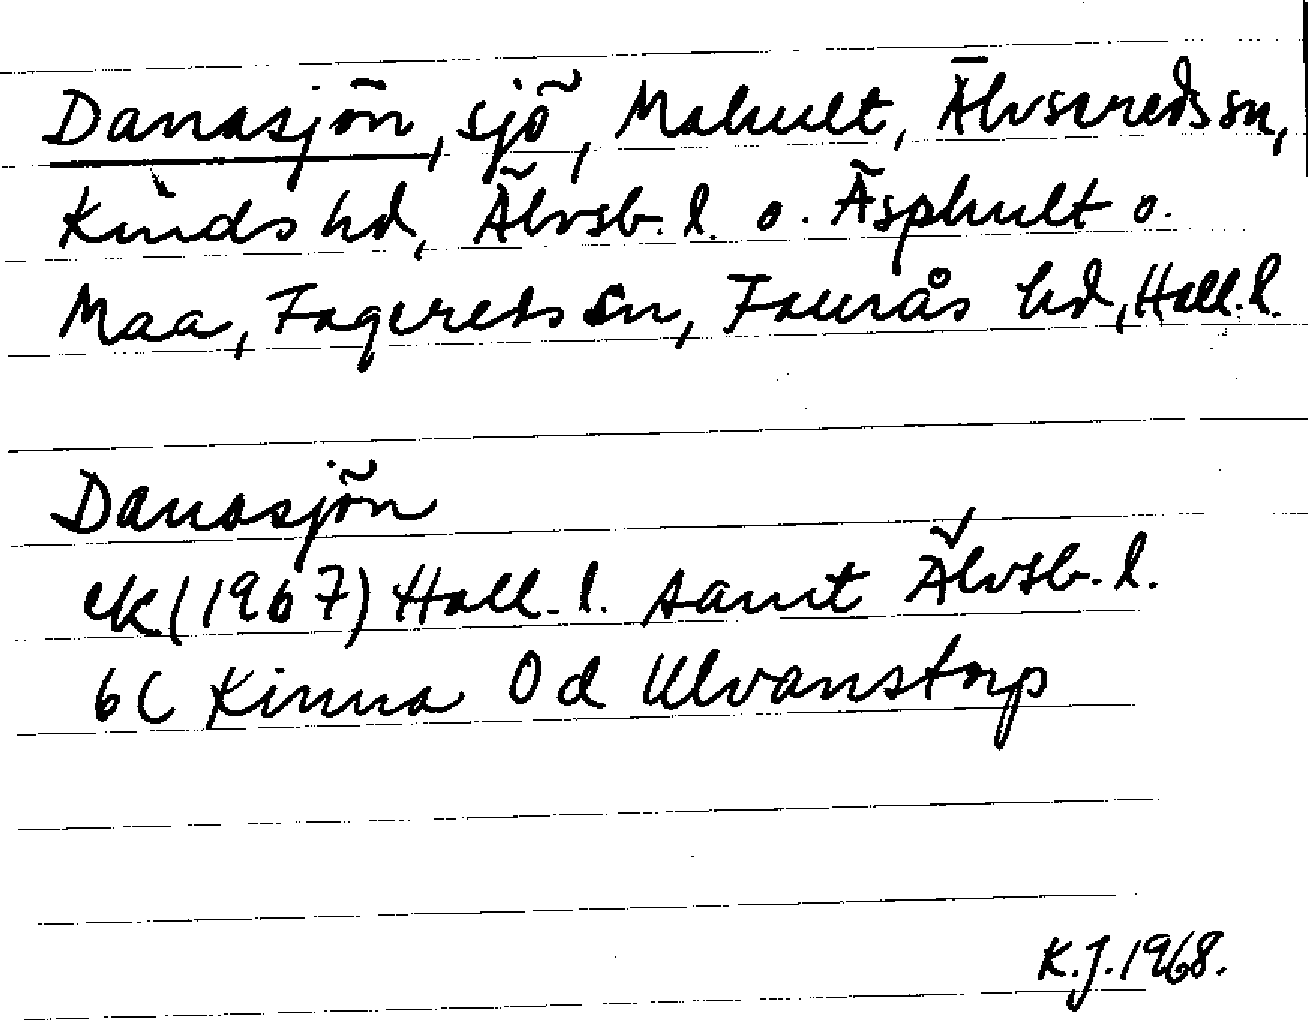 Danasjön, sjö, Mahult, Älvsereds sn,
Kinds hd, Älvsb. l. o. Äsphult o.
Maa, Fagereds sn, Faurås hd, Hall. l.
Danasjön
ek (1967) Hall. l. samt Älvsb. l.
6C Kinna 0d Ulvanstorp
K.J. 1968.